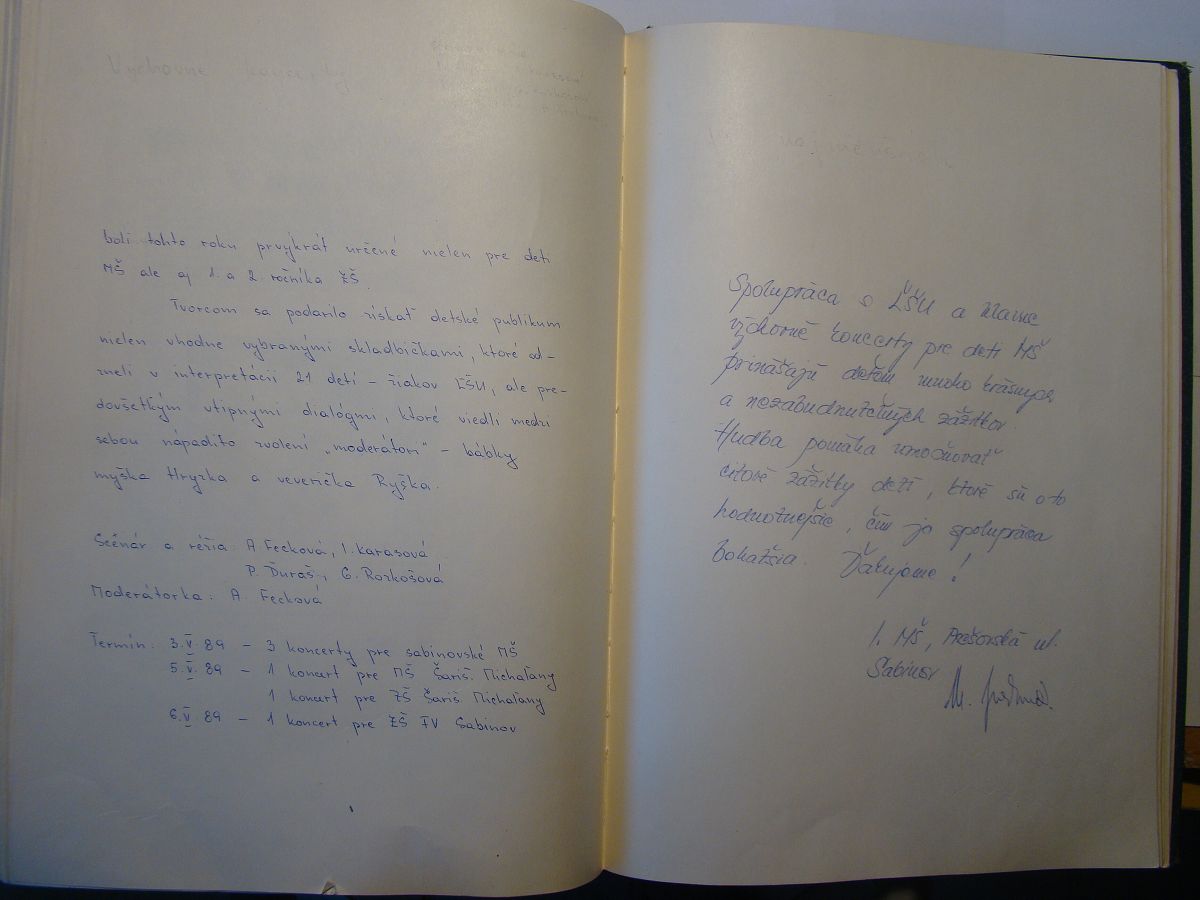 Výchovné koncerty
boli tohto roku prvýkrát určené nielen pre deti
MŠ ale aj 1. a 2. ročníka ZŠ.
Tvorcom sa podarilo získať detské publikum
nielen vhodne vybranými skladbičkami, ktoré od-
zneli v interpretácii 21 detí – žiakov ĽŠU, ale pre-
dovšetkým vtipnými dialógmi, ktoré viedli medzi
sebou nápadito zvolení „moderátori" – bábky
myška Hryzka a veverička Ryška.
Scénár a réžia: A. Fecková, I. Karasová
P. Ďuraš, G. Rozkošová
Moderátorka: A. Fecková
Termín: 3.V. 89 – 3 koncerty pre sabinovské MŠ
5.V. 89 – 1 koncert pre MŠ Šariš. Michaľany
1 koncert pre ZŠ Šariš. Michaľany
6.V. 89 – 1 koncert pre ZŠ IV Sabinov
Spolupráca s ĽŠU a hlavne
výchovné koncerty pre deti MŠ
prinášajú deťom mnoho krásnych
a nezabudnuteľných zážitkov.
Hudba pomáha umocňovať
citové zážitky detí, ktoré sú o to
hodnotnejšie, čím je spolupráca
bohatšia. Ďakujeme!
1. MŠ, Prešovská ul.
Sabinov
M.